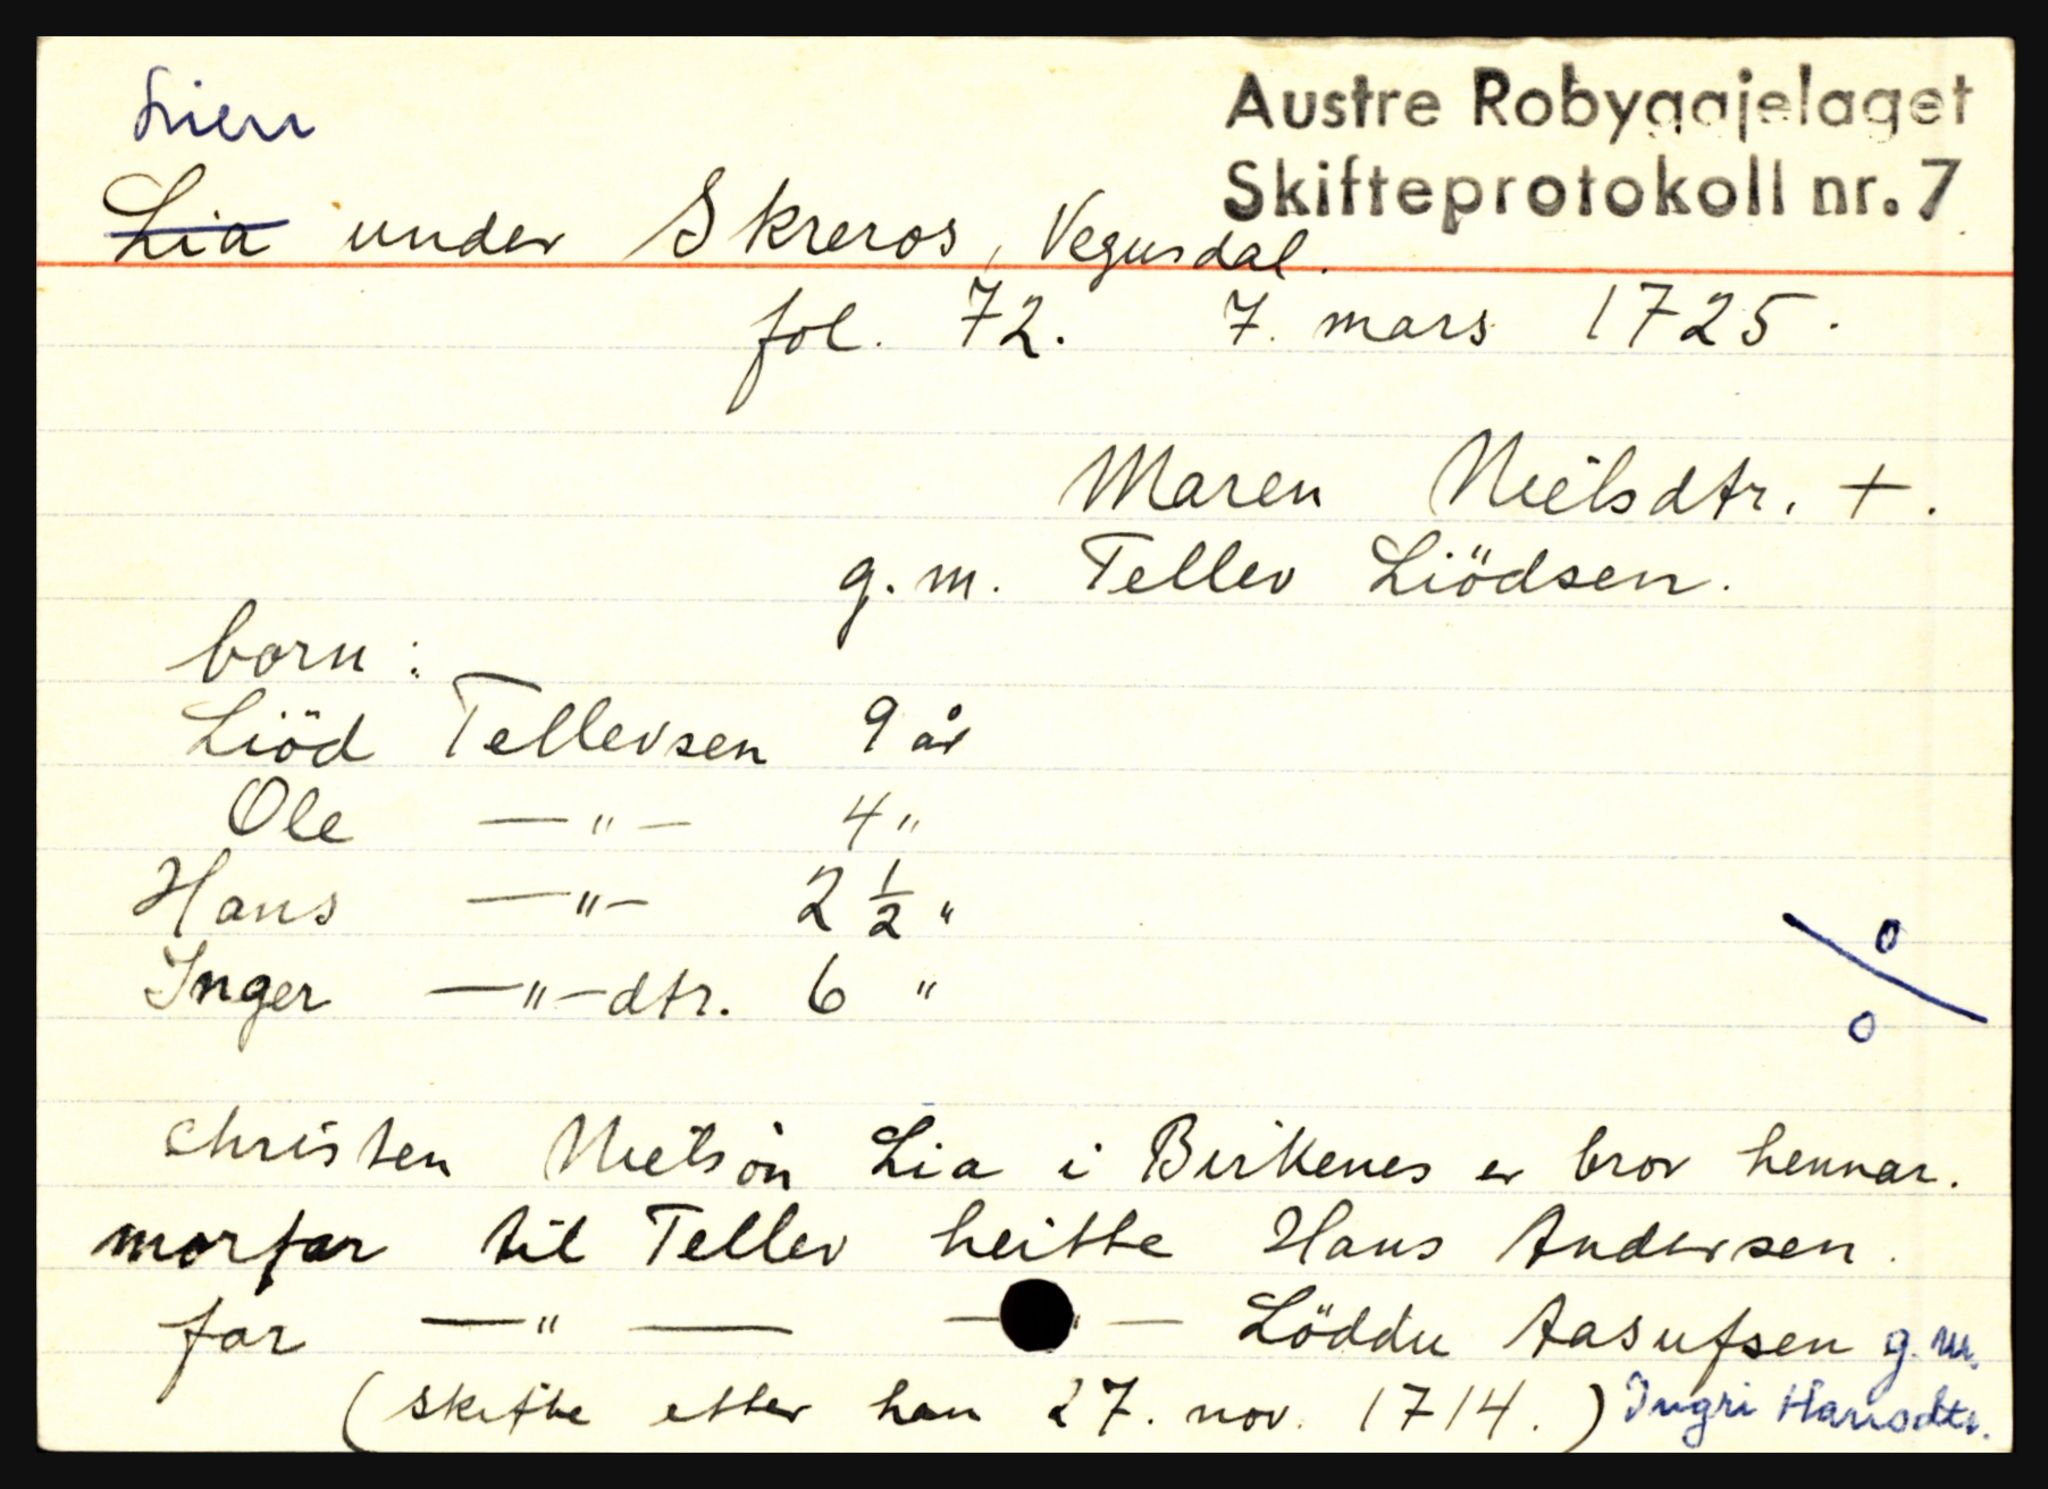 Lien
Austre Robyggjelaget
Skifteprotokoll nr. 7
Lia under Skreros, Vegusdal.
fol. 72. 7. mars 1725.
Maren Nielsdtr. +.
g. m. Tellev Liödsen.
born:
Liöd Tellevsen 9 år
Ole —"— 4 "
Hans —"— 2 1/2 "
Inger —"—dtr. 6 "
%
Christen Nielsön Lia i Birkenes er bror hennar.
morfar til Tellev heitte Hans Andersen.
far —"— —"— Löddu Aasufsen g. m.
(skifte etter han 27. nov. 1714.) Ingri Hansdtr.